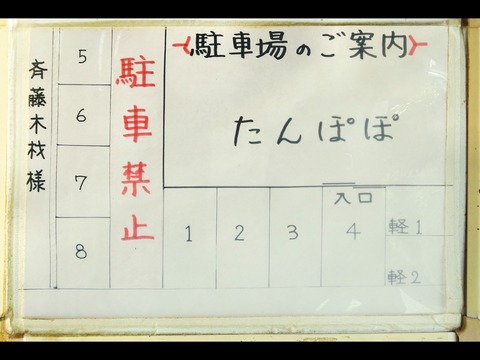 駐車場のご案内
たんぽぽ
斉藤木材様
5
6
7
8
駐車禁止
入口
1 2 3 4 軽1
軽2